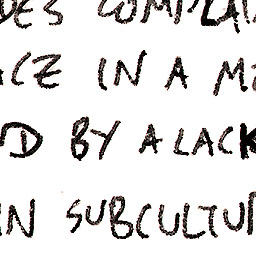 DES COMPLAI
ACE IN A M
D BY A LACK
IN SUBCULTU